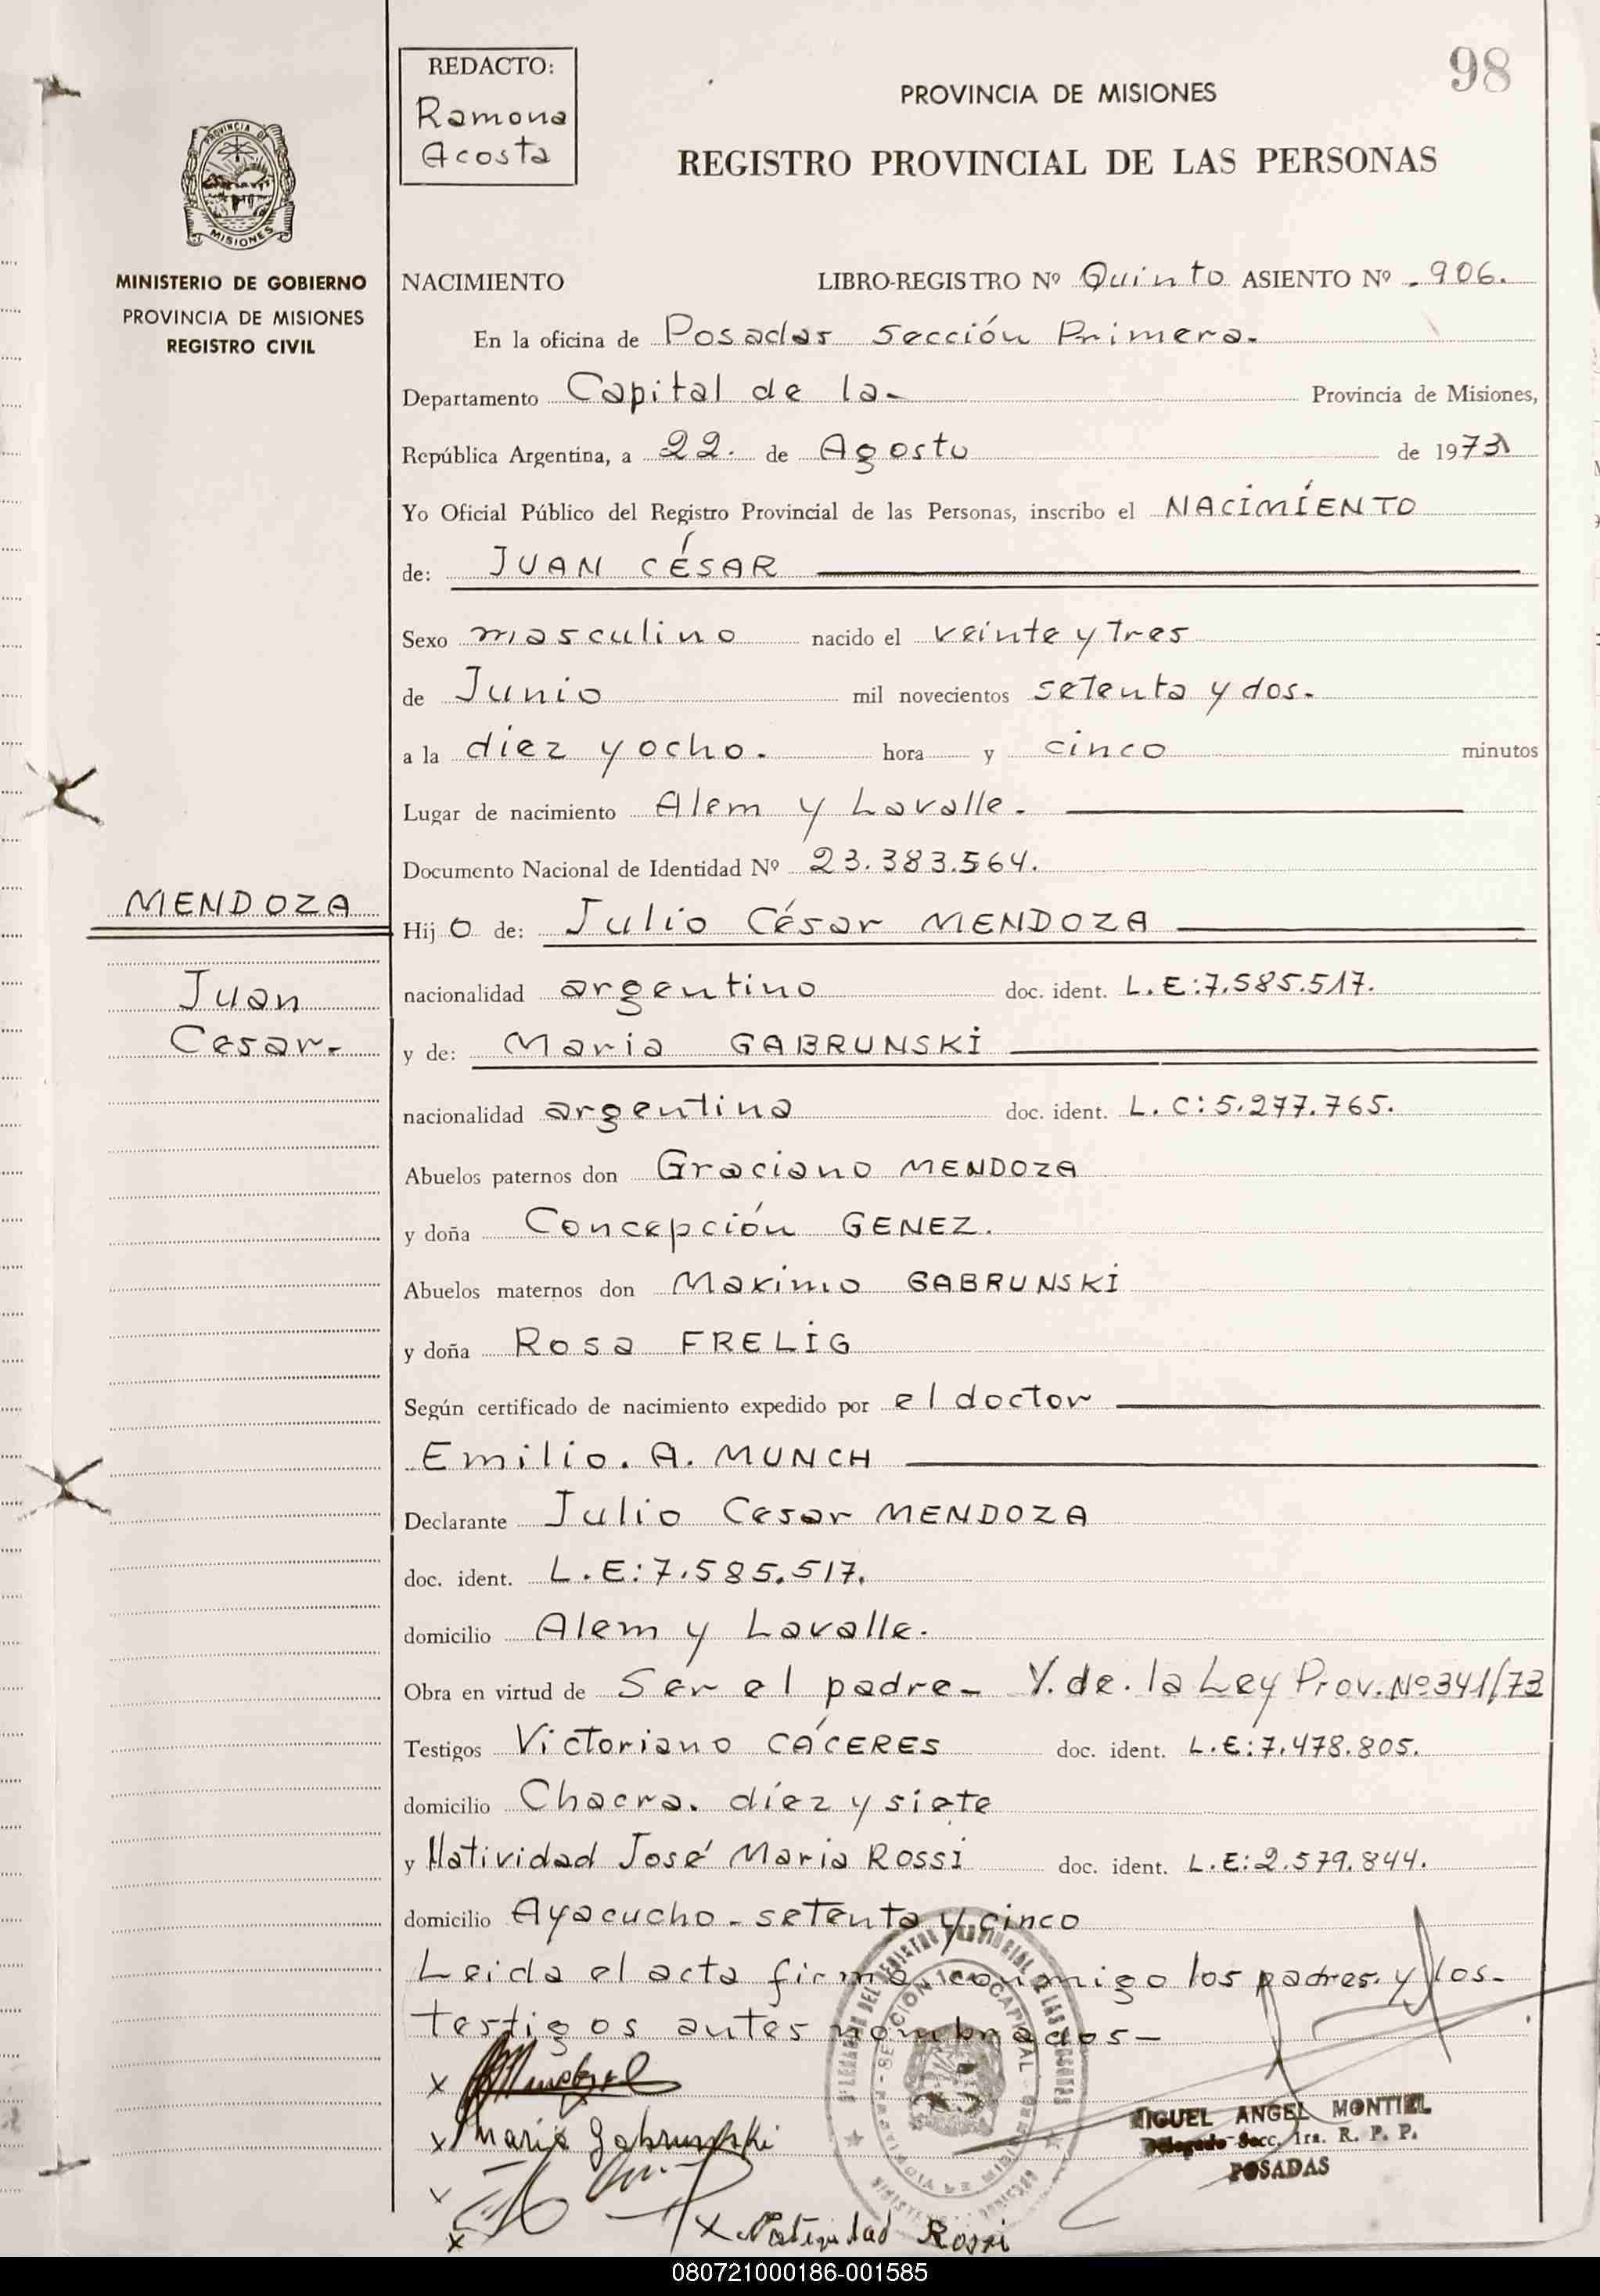 98
REDACTO:
Ramona
Acosta
PROVINCIA DE MISIONES
REGISTRO PROVINCIAL DE LAS PERSONAS
PROVINCIA DE
MISIONES
MINISTERIO DE GOBIERNO
PROVINCIA DE MISIONES
REGISTRO CIVIL
NACIMIENTO LIBRO-REGISTRO Nº Quinto ASIENTO Nº 906.
En la oficina de Posadas Sección Primera.
Departamento Capital de la- Provincia de Misiones,
República Argentina, a 22. de Agosto de 1973
Yo Oficial Público del Registro Provincial de las Personas, inscribo el NACIMIENTO
de: JUAN CÉSAR
Sexo masculino nacido el veinte y Tres
de Junio mil novecientos setenta y dos.
a la diez y ocho. hora y cinco minutos
Lugar de nacimiento Alem y Lavalle.
Documento Nacional de Identidad Nº 23.383.564.
MENDOZA
Juan
Cesar-
Hijo de: Julio César MENDOZA
nacionalidad argentino doc. ident. L.E:7.585.517.
y de: Maria GABRUNSKI
nacionalidad argentina doc. ident. L.C:5.277.765.
Abuelos paternos don Graciano MENDOZA
y doña Concepción GENEZ.
Abuelos maternos don Maximo GABRUNSKI
y doña Rosa FRELIG
Según certificado de nacimiento expedido por el doctor
Emilio. A. MUNCH
Declarante Julio Cesar MENDOZA
doc. ident. L.E:7.585.517.
domicilio Alem y Lavalle.
Obra en virtud de Ser el padre- Y.de.la Ley Prov.Nº341/73
Testigos Victoriano CÁCERES doc. ident. L.E:7.478.805.
domicilio Chacra. diez y siete
y Natividad José Maria ROSSI doc. ident. L.E:2.579.844.
domicilio Ayacucho-setenta y cinco
Leida el acta firma, conmigo los padres y los-
testigos antes nombrados-
x
x Maria Gabrunski
x
x
x Natividad Rossi
MIGUEL ANGEL MONTIEL
Delegado Secc. 1ra. R. P. P.
POSADAS
080721000186-001585